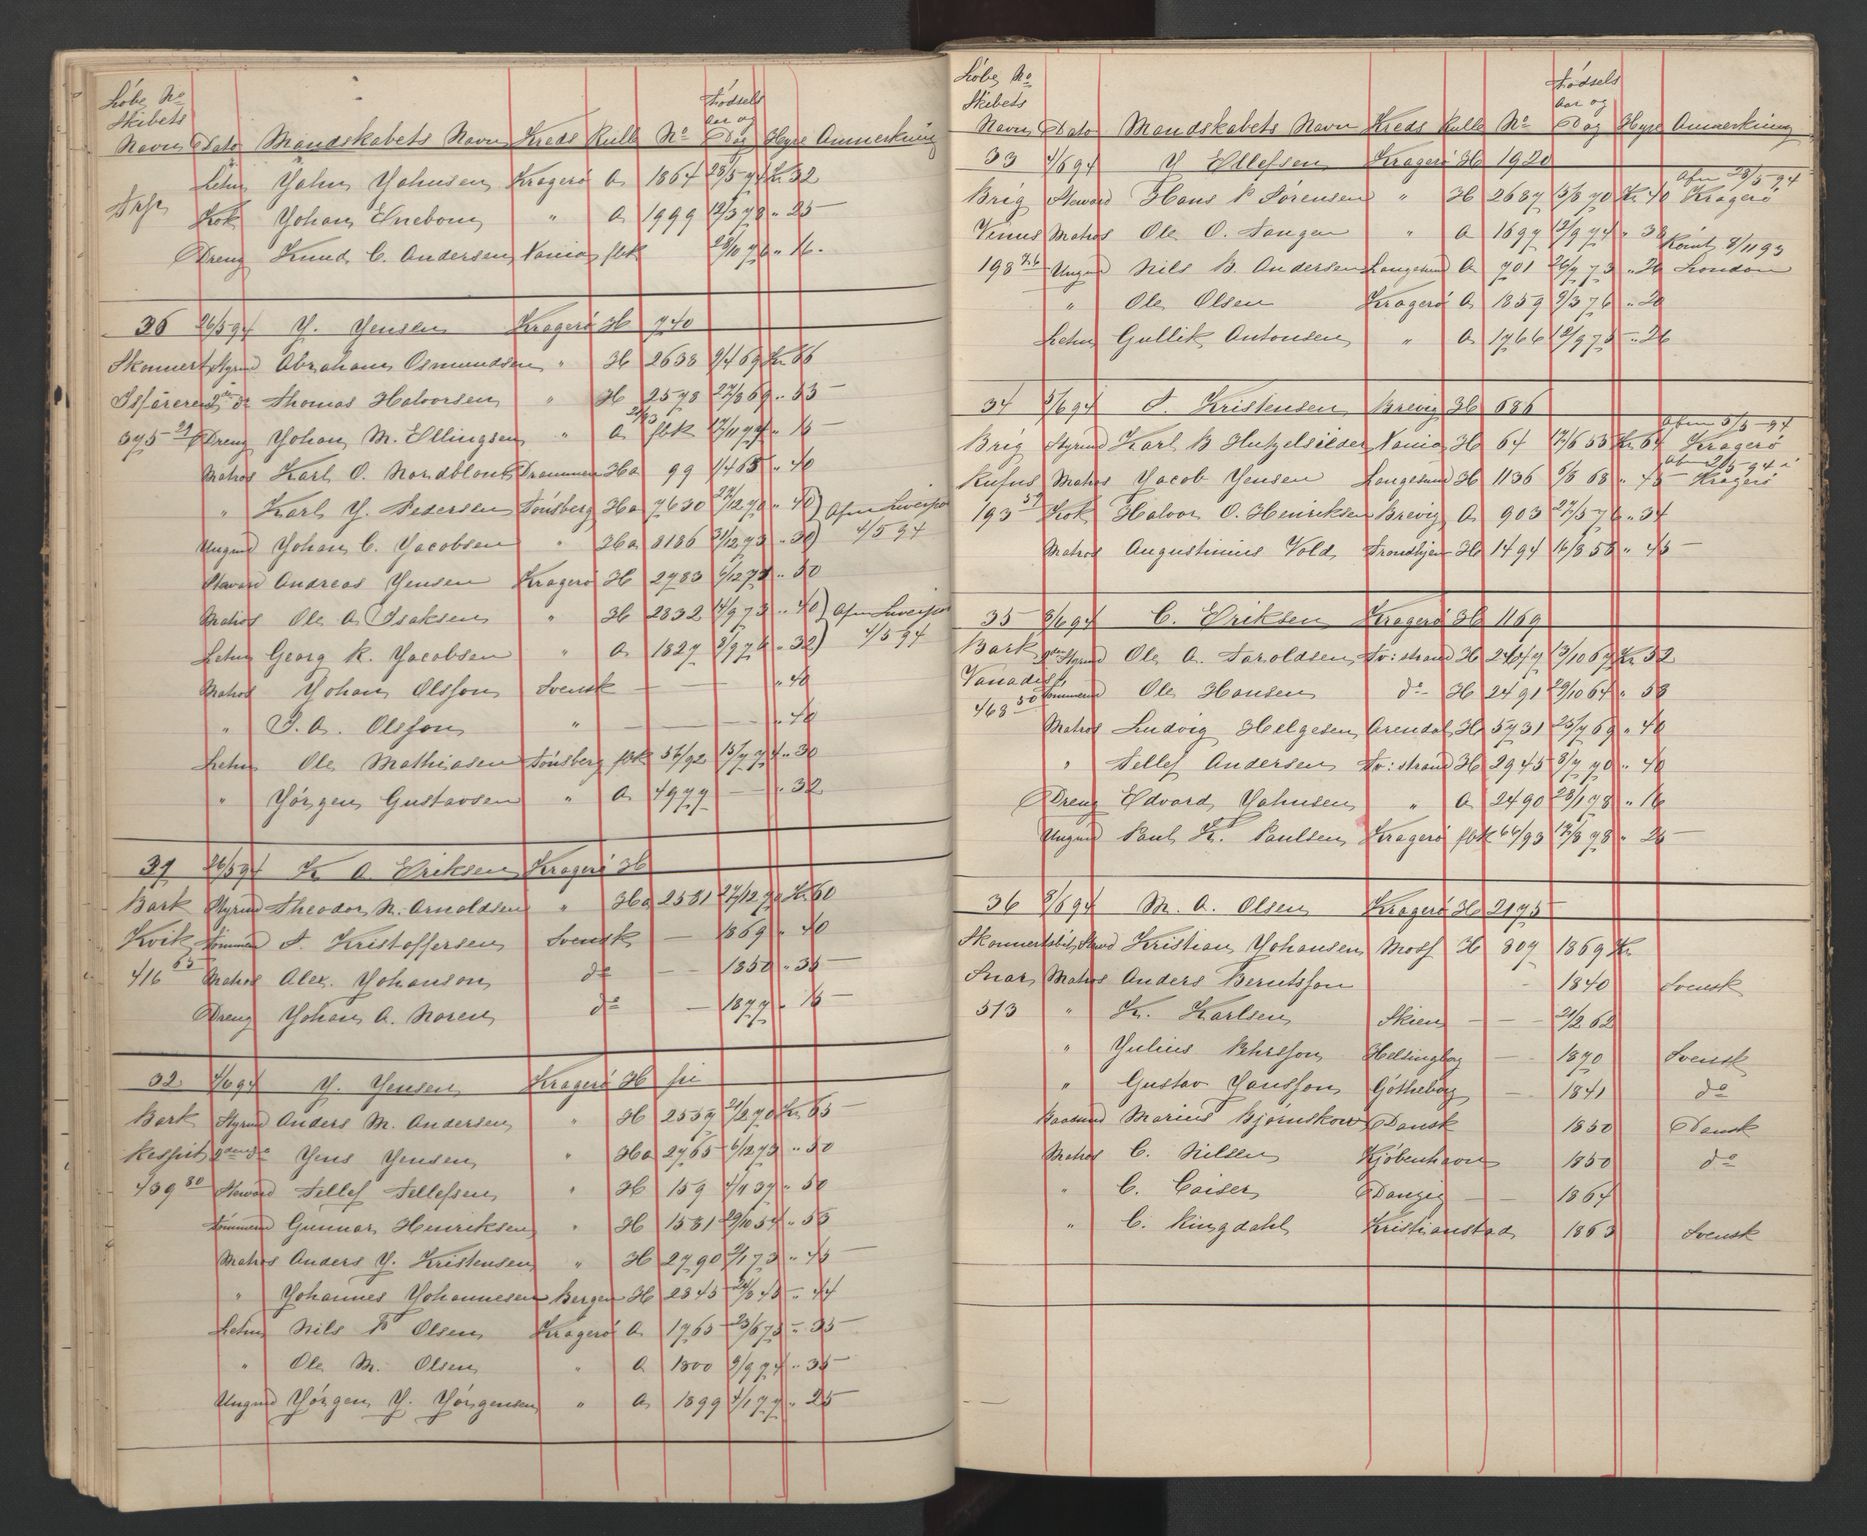 Løbe No
Skibets
Navn Dato Mandskabets Navn Kreds Rulle No Fødsels aar og Dag Hyre Anmerkning
Letm John Johnsen Kragerø A 1864 23/5 74 Kr 32
Kok Johan Enebom " A 1999 12/3 78 " 25 —
Dreng Knud C. Andersen Nania fbk 28/11 76 " 16 -
36 26/5 94 J. Jensen Kragerø H 740
Skonnert Styrmd Abraham Osmundsen " H 2638 9/4 69 Kr 66
Isføreren 2den do Thomas Halvorsen " H 2578 27/8 69 " 53 —
375 29 Dreng Johan M. Ellingsen " A 21/93 fbk 17/11 77 " 15 —
Matros Karl O. Nordblom Drammen Ha 99 1/4 65 " 40
" Karl J. Pedersen Tønsberg Ha 7630 27/12 70 " 40 ) Afm Liverpo
Ungmd Johan C. Jacobsen " Ha 8186 31/12 73 " 30 ) 4/5 94
Steward Andreas Jensen Kragerø H 2783 6/12 71 " 50
Matros Ole A Isaksen " H 2832 14/9 73 " 40 ) Afm Liverpo
Letm Georg K. Jacobsen " A 1827 8/9 76 " 32 ) 4/5 94
Matros Johan Olsson Svensk — — — " 40
" J. A. Olsson " — — — " 40
Letm Ole Mathiasen Tønsberg fbk 56/92 15/7 74 " 30
" Jørgen Gustavsen " A 4977 — " 32
31 26/5 94 K A. Eriksen Kragerø H
Bark Styrmd Theodor N. Arnoldsen " Ha 2581 27/12 70 Kr 60
Kvik Tømmermd S. Kristoffersen Svensk — 1869 " 40
416 65 Matros Alex. Johanson do — 1850 " 35 —
Dreng Johan A. Noren do — 1877 " 15 —
32 4/6 94 J. Jensen Kragerø H fri
Bark Styrmd Anders M. Andersen " H 2557 21/2 70 Kr 65 —
Respit 2den do Jens Jensen " Ha 2765 6/12 73 " 50
439 80 Steward Tellef Tellefsen " H 159 4/11 37 " 50
Tømmermd Gunnar Henriksen " H 1531 29/10 54 " 53
Matros Anders J. Kristensen " H 2790 2/1 73 " 45 —
" Johannes Johannesen Bergen H 2345 24/8 45 " 44
Letm Nils F Olsen Kragerø A 1765 23/6 75 " 35 —
" Ole M. Olsen " A 1800 9/9 74 " 35 —
Ungmd Jørgen J. Jørgensen " A 1899 4/1 77 " 25 —
Løbe No
Skibets
Navn Dato Mandskabets Navn Kreds Rulle No Fødsels aar og Dag Hyre Anmerkning
33 4/6 94 J Ellefsen Kragerø H 1920
Afm 28/5 94
Brig Steward Hans P Sørensen " H 2687 13/8 70 Kr 40 Kragerø
Venus Matros Ole O. Tangen " A 1697 12/9 74 " 38
Rømt 8/11 93
198 76 Ungmd Nils B. Andersen Langesund A 701 26/7 73 " 26 London
" Ole Olsen Kragerø A 1859 9/3 76 " 20
Letm Gullik Antonsen " A 1766 12/9 75 " 26
34 5/6 94 S. Kristensen Brevig H 686
Afm 5/5 94
Brig Styrmd Karl B Nania H 64 17/6 55 Kr 64 Kragerø
Afm 21/5 94
Rufus Matros Jacob Jensen Langesund H 1136 6/8 68 " 45 — Kragerø
193 59 Kok Halvor O. Henriksen Brevig A 903 27/5 76 " 34
Matros Augustinius Vold Trondhjem H 1494 16/8 58 " 45 —
35 8/6 94 C. Eriksen Kragerø H 1169
Bark 2den Styrmd Ole A. Taroldsen Tv: strand H 2447 13/10 67 Kr 52
Vanadis Tømmermd Ole Hansen do H 2491 29/10 64 " 58
468 50
Matros Ludvig Helgesen Arendal H 5731 25/7 69 " 40
" Tellef Andersen Tv: strand H 2945 8/7 70 " 40
Dreng Edvard Johnsen " A 2490 28/1 78 " 16
Ungmd Paul K. Paulsen Kragerø fbk 66/93 17/8 78 " 26 —
36 8/6 94 M. A. Olsen Kragerø H 2175
Skonnert Kristian Johansen Moss H 807 1869 Kr
Snar Matros Anders Berntsson — 1840 Svensk
513 " K. Karlsen Skien — — 21/2 62
" Julius Behrsson Helsingborg — 1870 Svensk
" Gustav Jansson Gøtheborg — 1841 do
Baadsmd Marius Bjørnskow Dansk 1850 Dansk
Matros C. Nilsen Kjøbenhavn 1850 do
" C. Caiser Danzig — — 1864
" C. Ringdahl Kristianstad 1863 Svensk